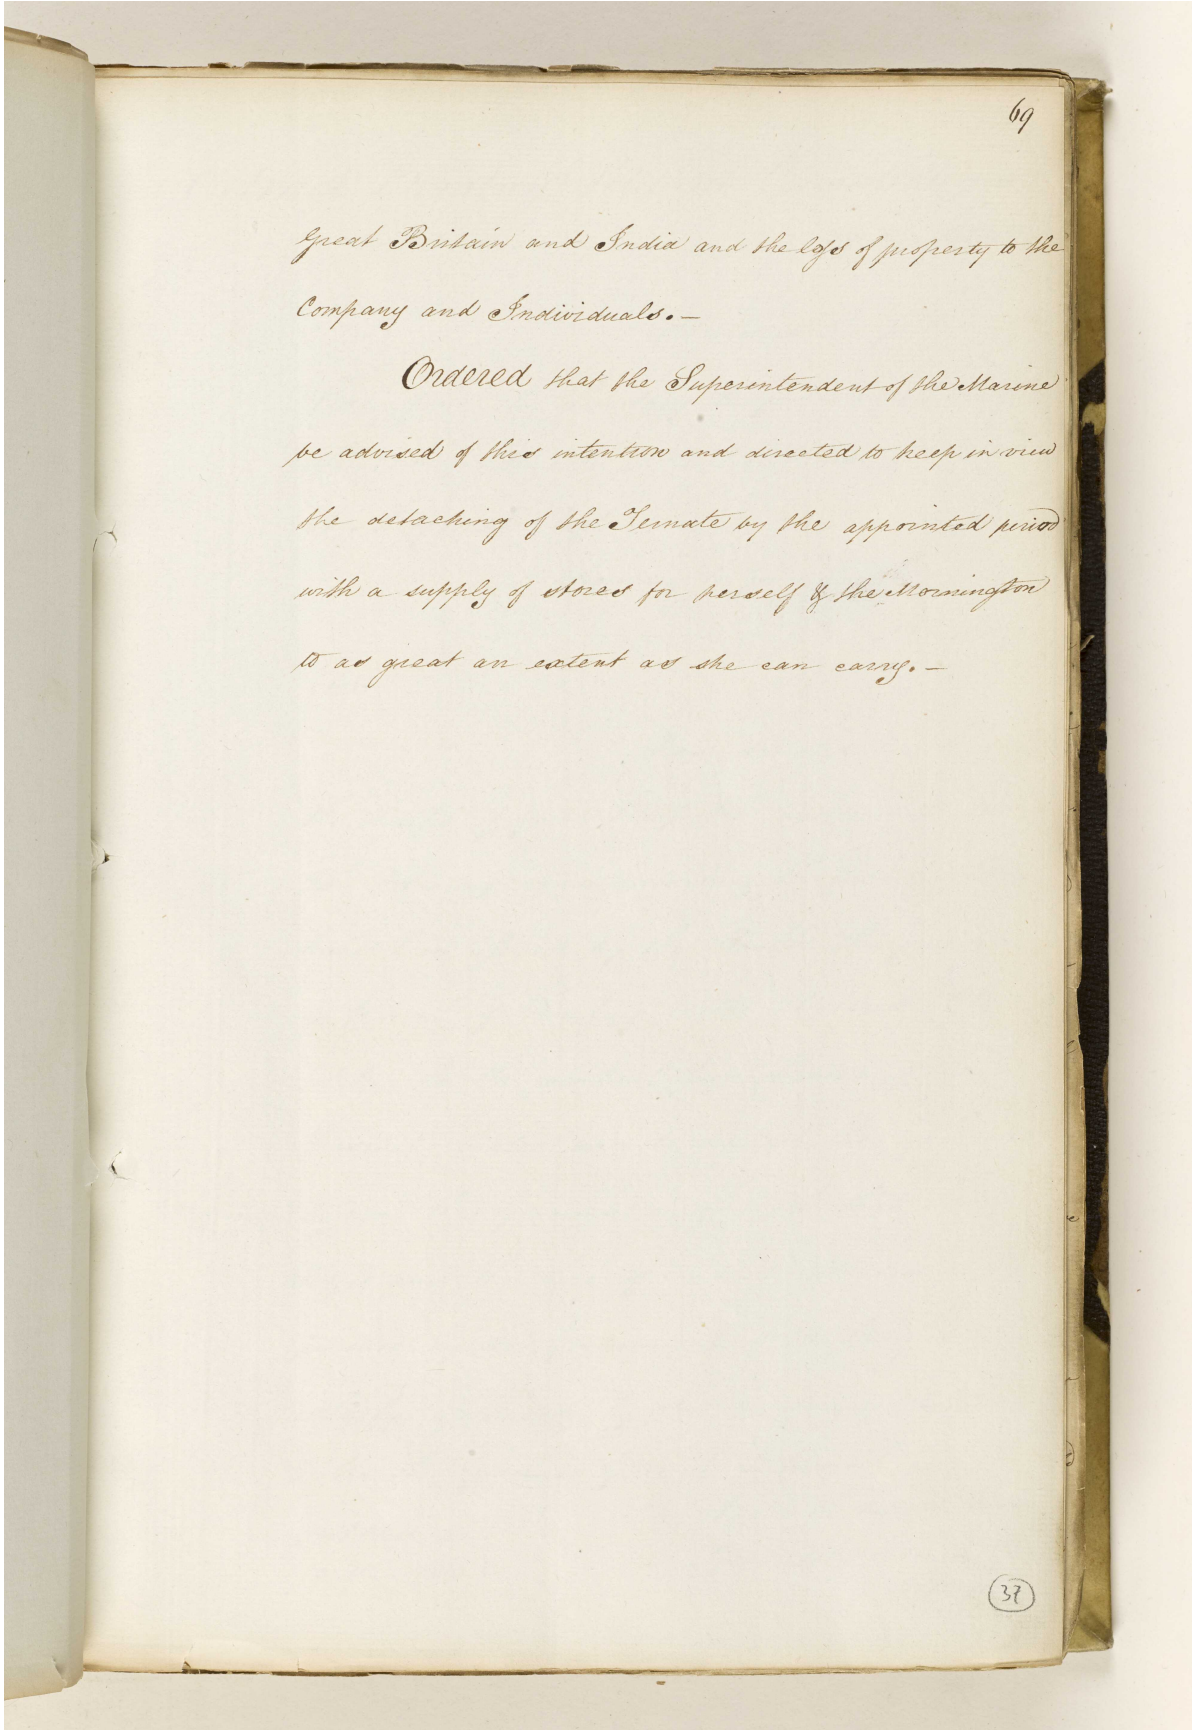 69
Great Britain and India and the loſs of property to the
Company and Individuals. —
Ordered that the Superintendent of the Marine
be advised of this intention and directed to keep in view
the detaching of the Ternate by the appointed period
with a supply of stores for herself & the Mornington
to as great an extent as she can carry. —
37